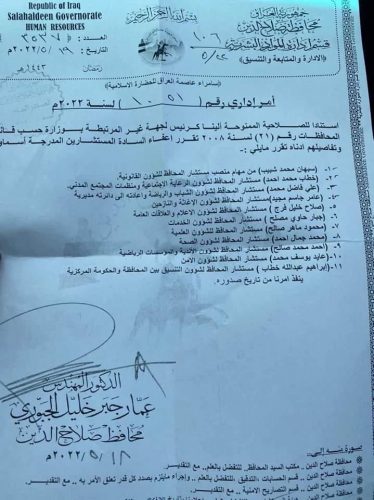 Republic of Iraq
Salahaldeen Governorate
HUMAN RESOURCES
بسم الله الرحمن الرحيم
جمهورية العراق
محافظة صلاح الدين
قسم إدارة الموارد البشرية
"الادارة والمتابعة والتنسيق"
العدد:
التاريخ: ١٩ /٥ /٢٠٢٢م
رمضان ١٤٤٣هـ
"سامراء عاصمة العراق للحضارة الاسلامية"
أمر إداري رقم ( ١٠٥١ ) لسنة ٢٠٢٢م
استنادا للصلاحية الممنوحة الينا كرئيس لجهة غير المرتبطة بوزارة حسب
المحافظات رقم (٢١) لسنة ٢٠٠٨ تقرر اعفاء السادة المستشارين المدرجة
وتفاصيلهم ادناه تقرر مايلي :
١- (سبهان محمد شبيب) من مهام منصب مستشار المحافظ للشؤون القانونية.
٢- (خطاب محمد احمد) مستشار المحافظ لشؤون الرعاية الاجتماعية ومنظمات المجتمع المدني.
٣- (علي فاضل محمد) مستشار المحافظ لشؤون الشباب والرياضة واعادته الى دائرته مديرية
٤- (عامر جاسم مجيد) مستشار المحافظ لشؤون الاغاثة والنازحين
٥- (صلاح خليل فرج) مستشار المحافظ لشؤون الاعلام والعلاقات العامة
٦- (جبار حاوي مصلح) مستشار المحافظ لشؤون الخدمات
٧- (محمود ماهر صالح) مستشار المحافظ لشؤون العلمية
٨- (محمد جمال احمد) مستشار المحافظ لشؤون الصحة
٩- (احمد محمد صالح) مستشار المحافظ لشؤون الأندية والمؤسسات الرياضية
١٠- (عايد يوسف محمد) مستشار المحافظ لشؤون الأمن
١١- (ابراهيم عبدالله خطاب) مستشار المحافظ لشؤون التنسيق بين المحافظة والحكومة المركزية
ينفذ أمرنا من تاريخ صدوره.
الدكتور المهندس
عمار جبر خليل الجبوري
محافظ صلاح الدين
١٨ /٥ /٢٠٢٢م
صورة منه إلى :-
محافظة صلاح الدين . مكتب السيد المحافظ. للتفضل بالعلم.. مع التقدير.
محافظة صلاح الدين . قسم الحسابات. التدقيق. للتفضل بالعلم.. وإجراء مايلزم بصدد كل قدر تعلق الأمر به .. مع
محافظة صلاح الدين . قسم التصاريح الامنية .. مع التقدير.